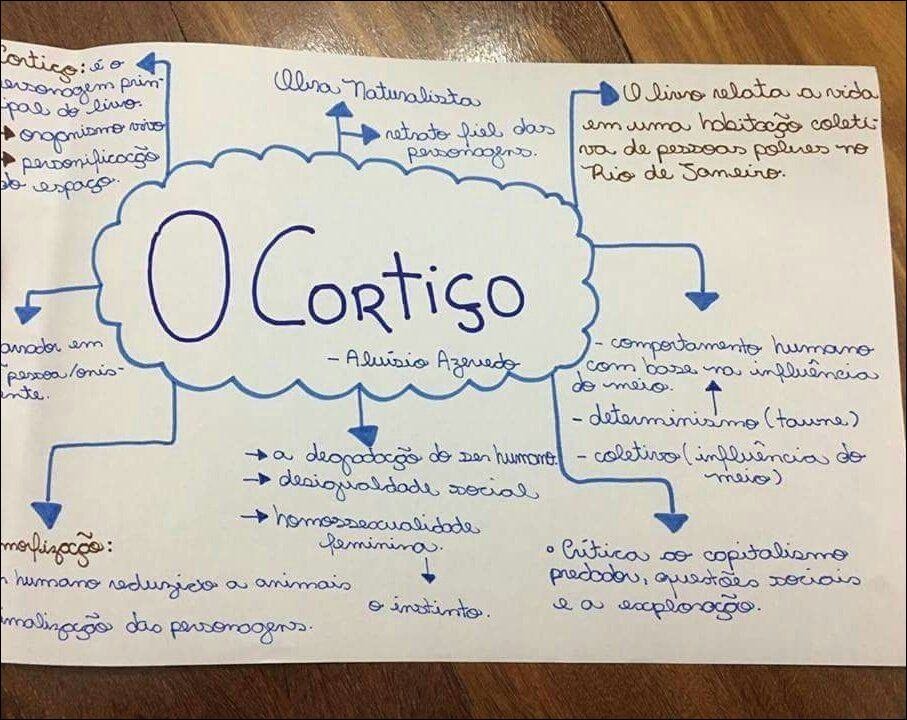 Cortiço: é o
personagem prin-
cipal do livro.
→ organismo vivo
→ personificação
do espaço.
Obra Naturalista
→ retrato fiel das
personagens.
O livro relata a vida
em uma habitação coleti-
va de pessoas pobres no
Rio de Janeiro.
O CORTIÇO
- Aluísio Azevedo
narrador em
pessoa/onis-
ciente.
- comportamento humano
com base na influência
do meio.
- determinismo (taune)
- coletivo (influência do
meio)
→ a degradação do ser humano.
→ desigualdade social
→ homossexualidade
feminina.
o instinto.
• Crítica ao capitalismo
predador, questões sociais
e a exploração.
morfização:
humano reduzido a animais
malização das personagens.